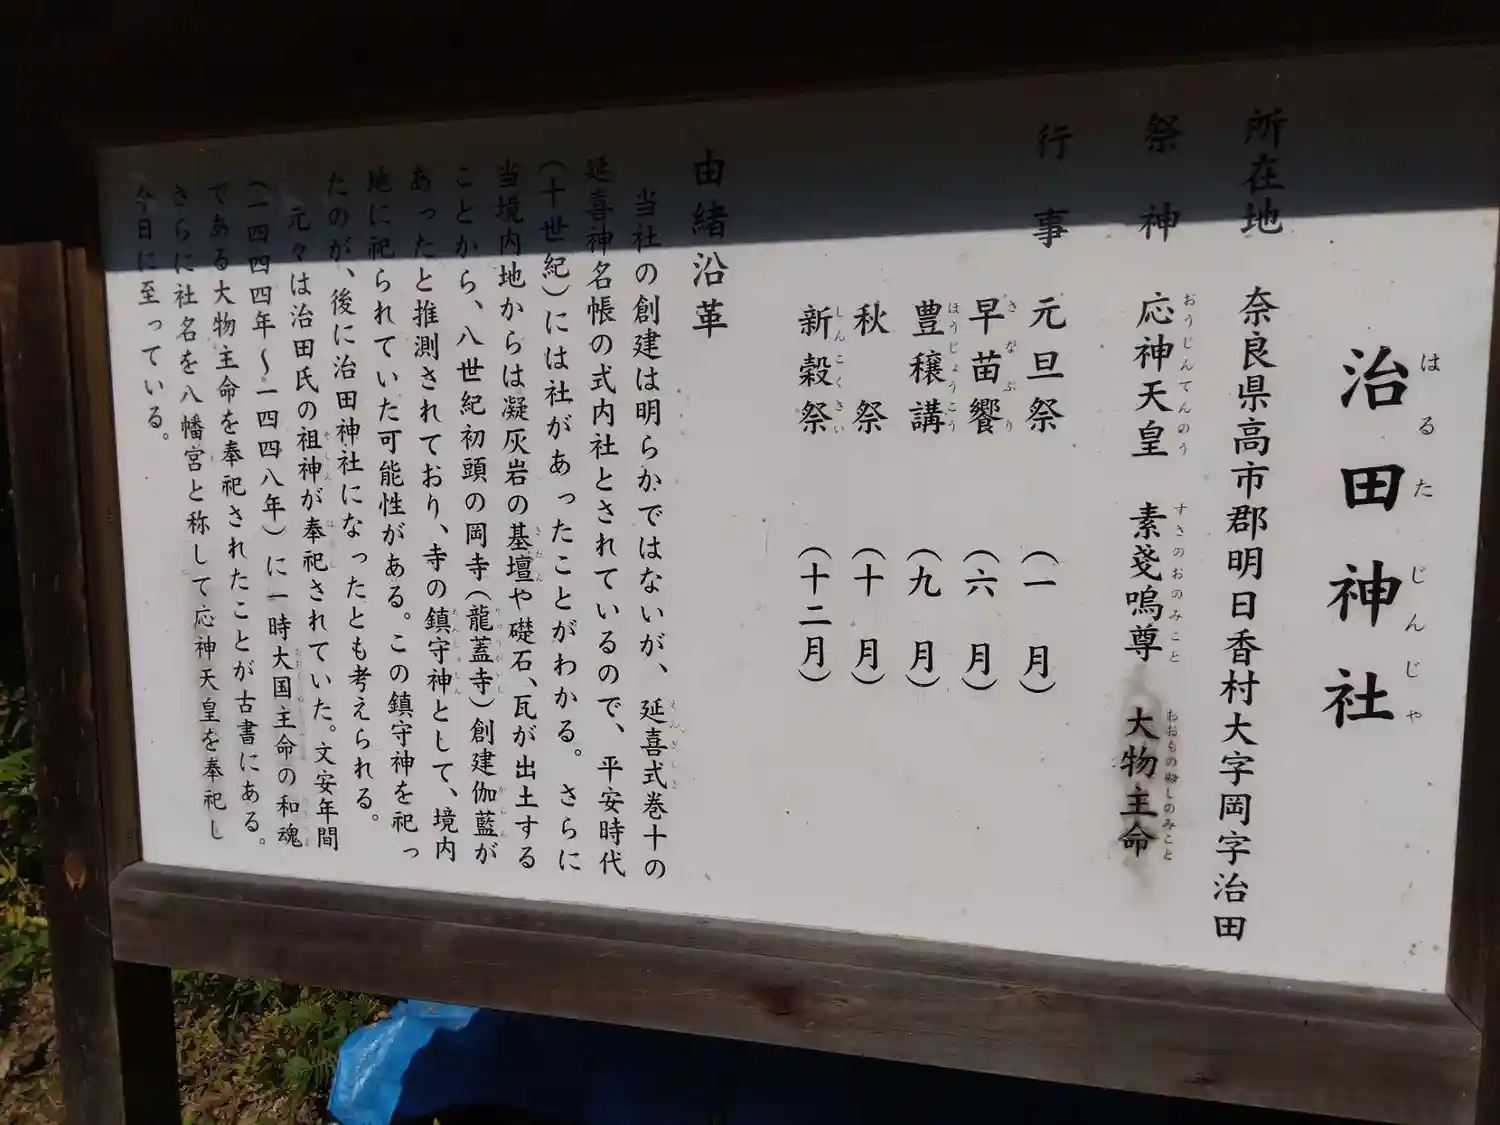 治田神社
はるたじんじゃ
所在地 奈良県高市郡明日香村大字岡字治田
祭神 応神天皇 素戔嗚尊 大物主命
おうじんてんのう すさのおのみこと おおものぬしのみこと
行事 元旦祭 (一月)
早苗饗 (六月)
さなぶり
豊穣講 (九月)
ほうじょうこう
秋祭 (十月)
新穀祭 (十二月)
しんこくさい
由緒沿革
当社の創建は明らかではないが、延喜式巻十の
延喜神名帳の式内社とされているので、平安時代
(十世紀)には社があったことがわかる。さらに
当境内地からは凝灰岩の基壇や礎石、瓦が出土する
ことから、八世紀初頭の岡寺(龍蓋寺)創建伽藍が
あったと推測されており、寺の鎮守神として、境内
地に祀られていた可能性がある。この鎮守神を祀っ
たのが、後に治田神社になったとも考えられる。
元々は治田氏の祖神が奉祀されていた。文安年間
(一四四四年〜一四四八年)に一時大国主命の和魂
である大物主命を奉祀されたことが古書にある。
さらに社名を八幡宮と称して応神天皇を奉祀し
今日に至っている。